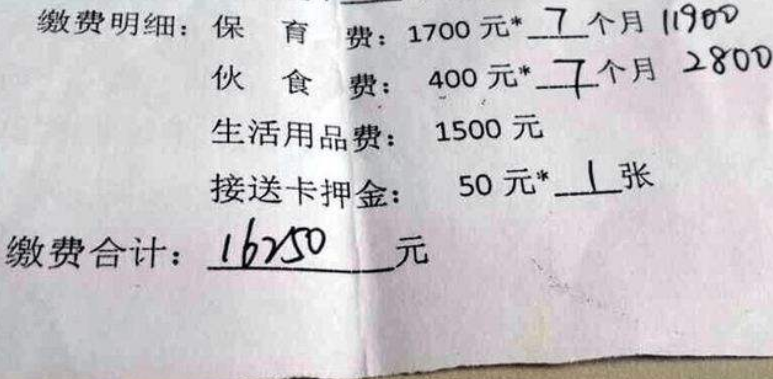 缴费明细：保育费：1700元*7个月 11900
伙食费：400元*7个月 2800
生活用品费：1500元
接送卡押金：50元*1张
缴费合计：16250元